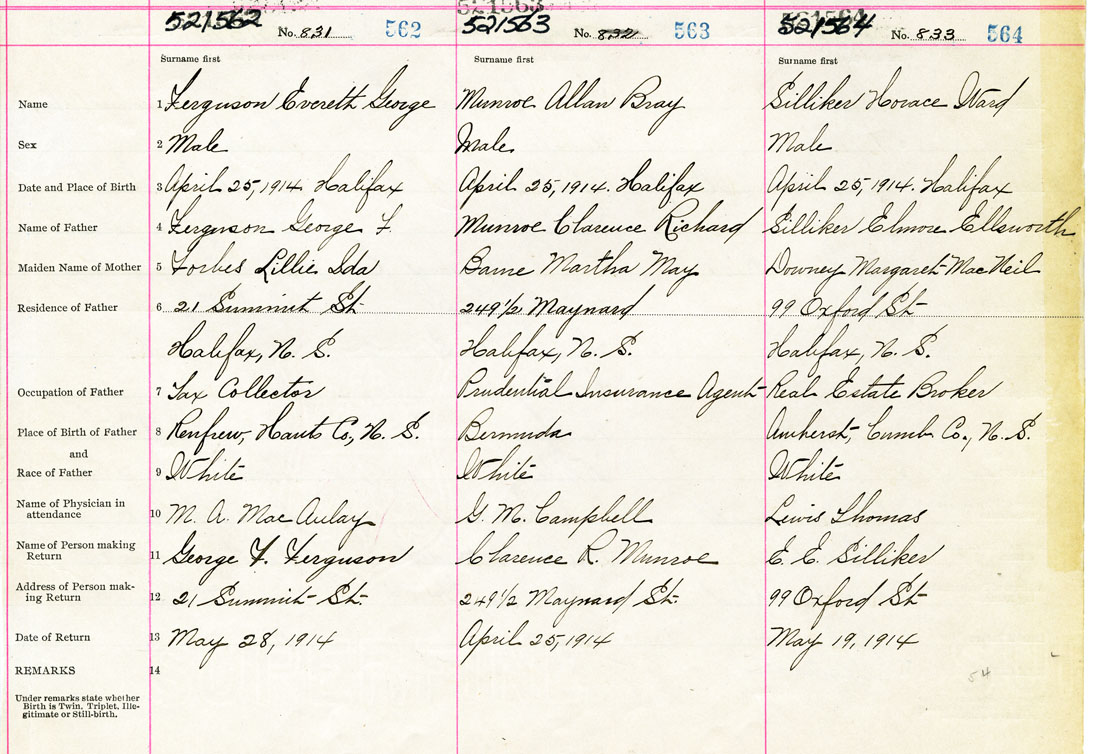 521562 No. 831 562 521563 No. 832 563 521564 No. 833 564
Surname first Surname first Surname first
Name 1 Ferguson Everett George Munroe Allan Bray Silliker Horace Ward
Sex 2 Male Male Male
Date and Place of Birth 3 April 25, 1914 Halifax April 25, 1914. Halifax April 25, 1914. Halifax
Name of Father 4 Ferguson George F. Munroe Clarence Richard Silliker Elmore Ellsworth
Maiden Name of Mother 5 Forbes Lillie Ida Martha May Downey Margaret MacNeil
Residence of Father 6 21 Summit St. 249 1/2 Maynard 99 Oxford St.
Halifax, N. S. Halifax, N. S. Halifax, N. S.
Occupation of Father 7 Tax Collector Prudential Insurance Agent Real Estate Broker
Place of Birth of Father 8 Renfrew, Hants Co, N. S. Bermuda Amherst, Cumb Co., N. S.
and
Race of Father 9 White White White
Name of Physician in
attendance 10 M. A. MacAulay G. M. Campbell Lewis Thomas
Name of Person making
Return 11 George F. Ferguson Clarence R. Munroe E. E. Silliker
Address of Person mak-
ing Return 12 21 Summit St. 249 1/2 Maynard St. 99 Oxford St.
Date of Return 13 May 28, 1914 April 25, 1914 May 19, 1914
REMARKS 14
54
Under remarks state whether
Birth is Twin, Triplet, Ille-
gitimate or Still-birth.